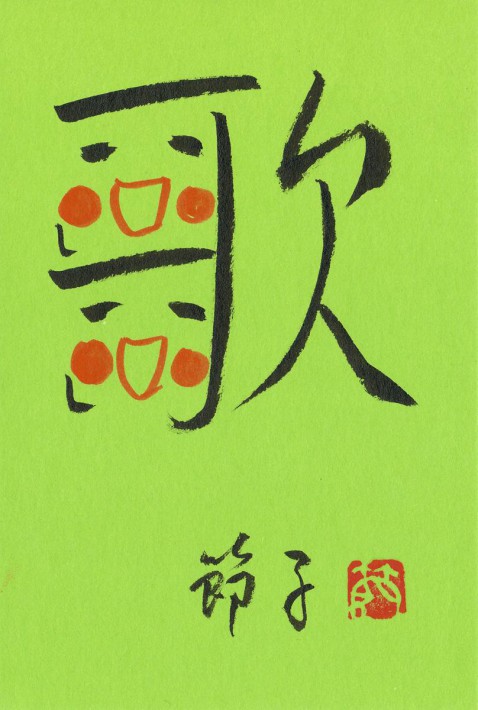 歌
節子